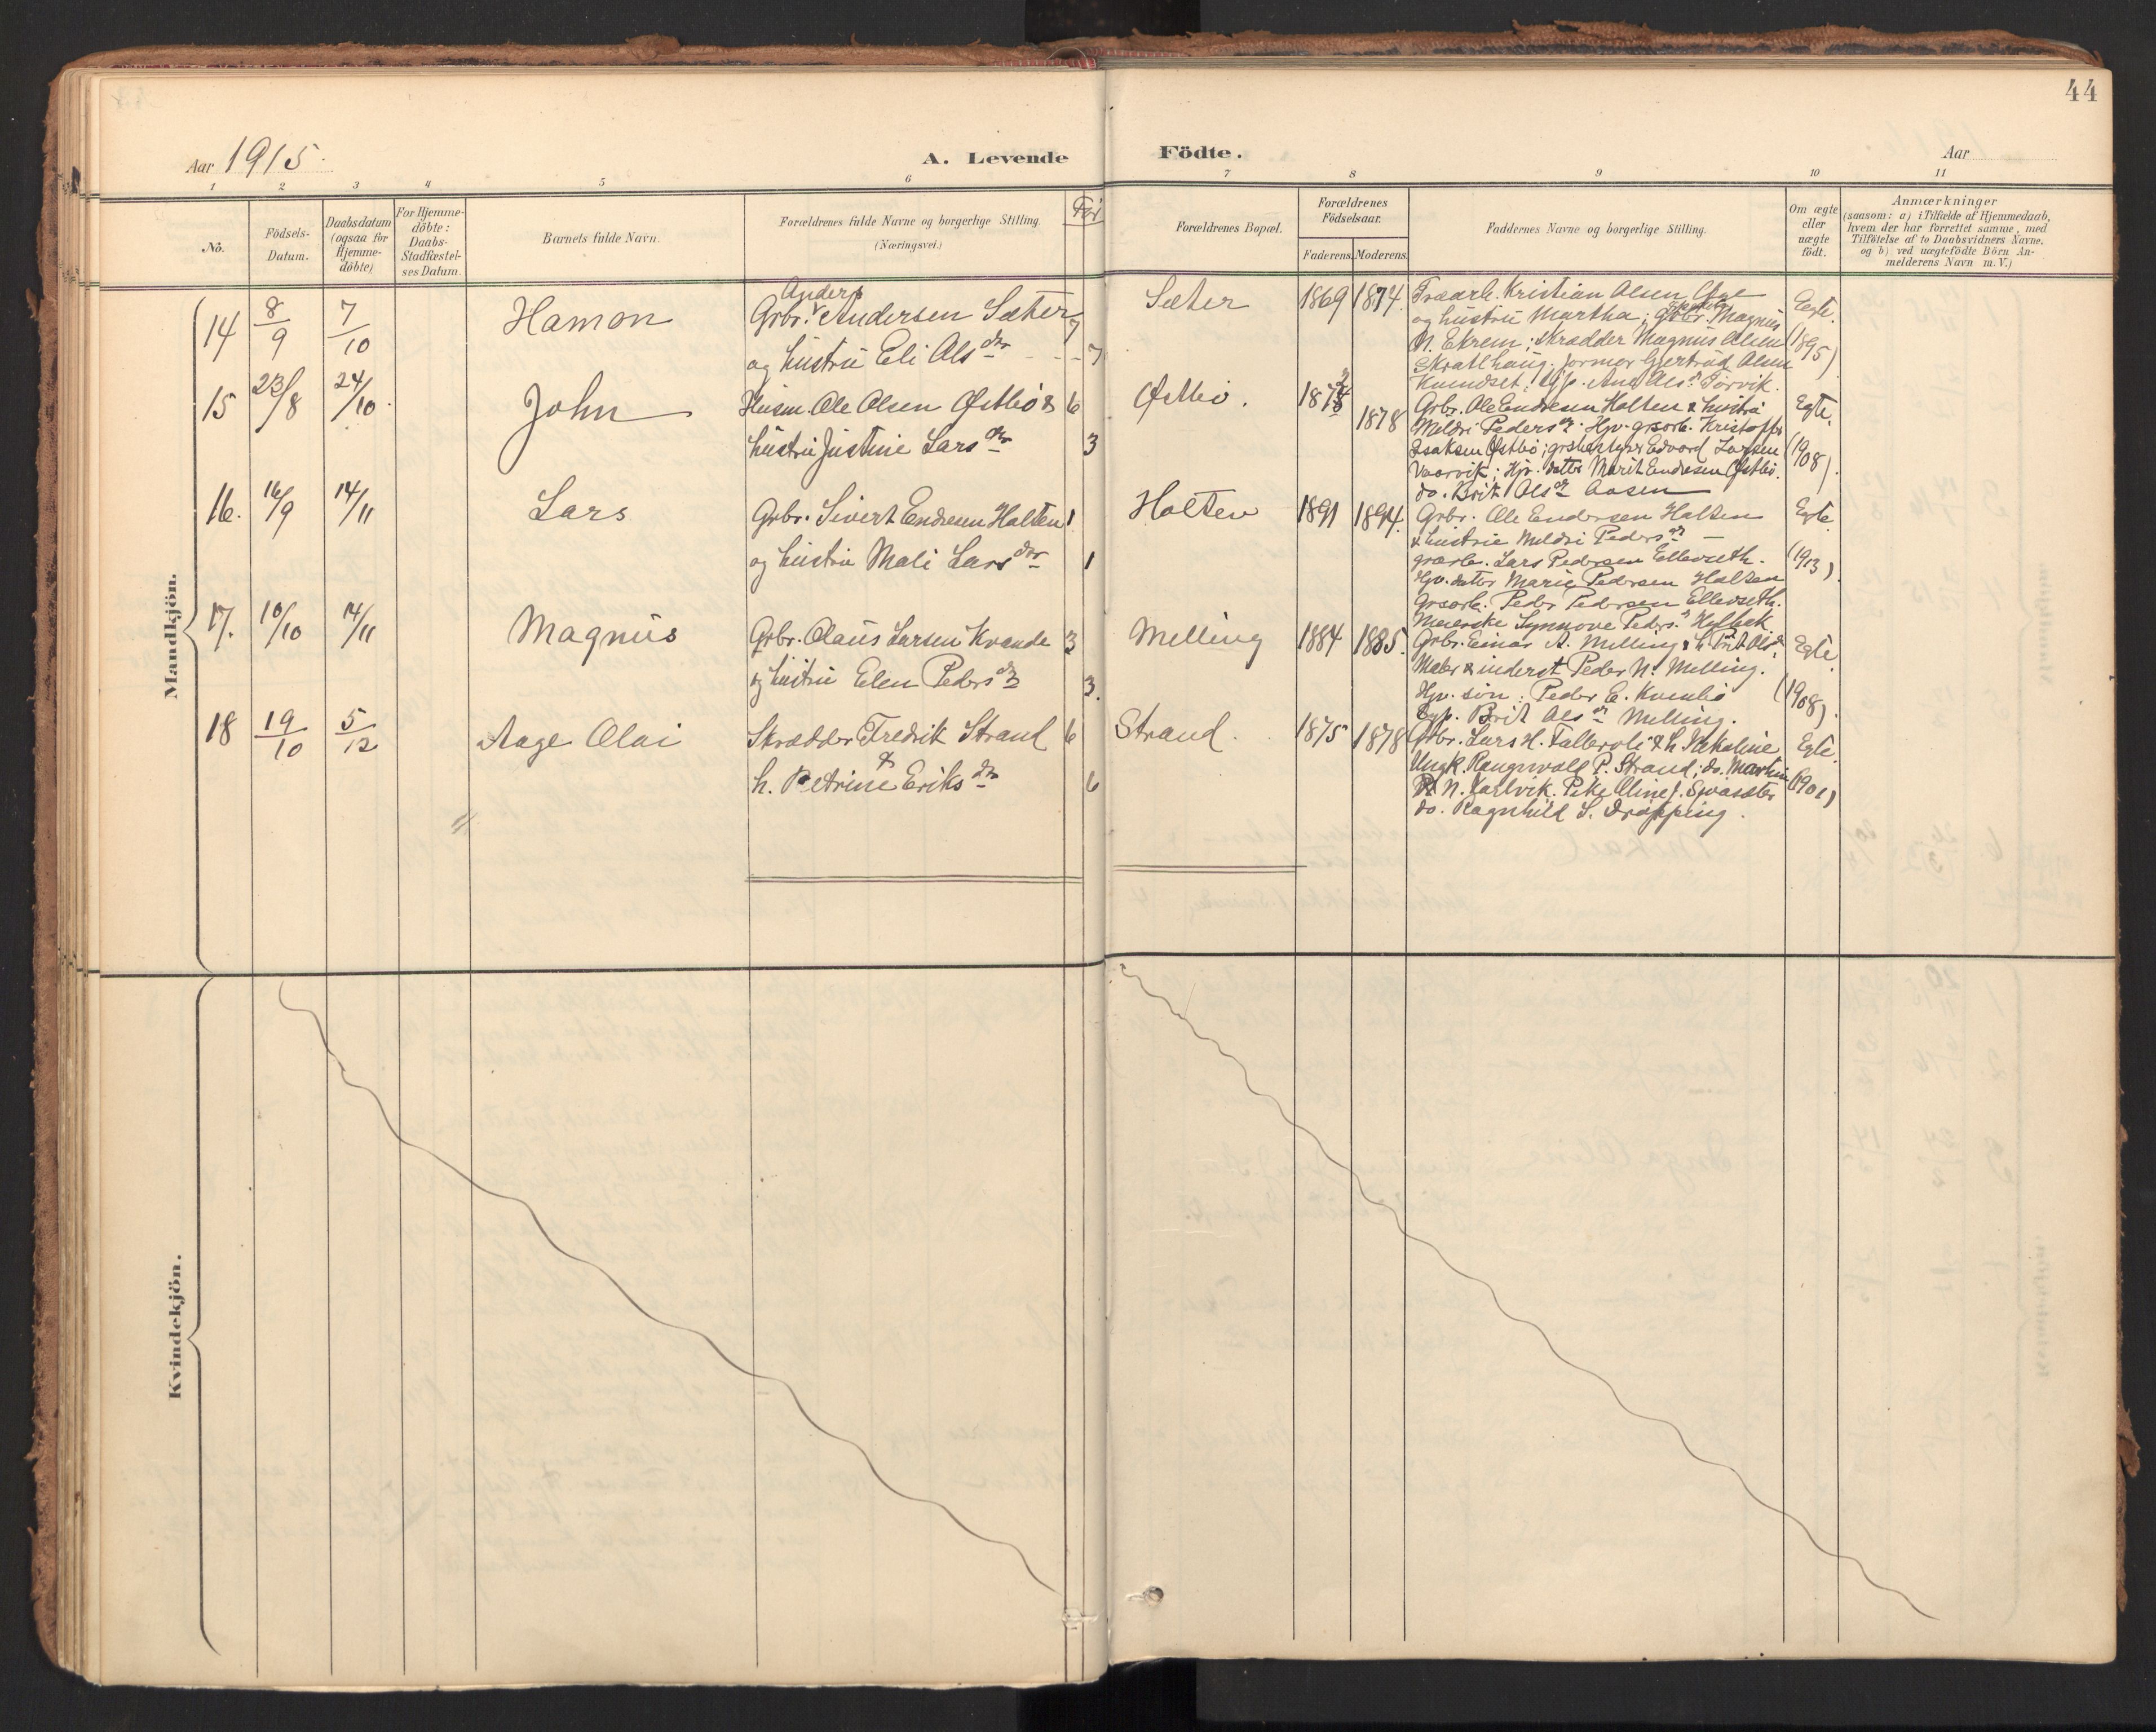 44
Aar 1915.
A. Levende
Födte.
Aar
1 2 3 4 5 6 7 8 9 10 11
No.
Födsels-
Datum.
Daabsdatum
(ogsaa for
Hjemme-
döbte)
For Hjemme-
döbte:
Daabs-
Stadfæstel-
ses Datum.
Barnets fulde Navn.
Forældrenes fulde Navne og borgerlige Stilling.
(Næringsvei.)
Forældrenes Bopæl.
Forældrenes
Födselsaar.
Faderens.
Moderens.
Faddernes Navne og borgerlige Stilling.
Om ægte
eller
uægte
födt.
Anmærkninger
(saasom: a) i Tilfælde af Hjemmedaab,
hvem der har forrettet samme, med
Tilföielse af to Daabsvidners Navne.
og b) ved uægtefödte Börn An-
melderens Navn m. V.)
Mandkjön.
14 8/9 7/10 Hamon
Anders
Grbr. Andersen Sæter 7
og hustru Eli Olsdtr 7
Sæter 1869 1874.
Træarb. Kristian Olsen
og hustru Martha; Magnus
N. Ekrem; skrædder Magnus Olsen
Gjertrud Olsen
Egte.
(1895)
15 23/8 24/10. John
Husm. Ole Olsen Østbö & 6
hustru Justine Larsdtr 3
Østbö. 1878
Grbr. Ole Endresen Holten & hustru
Meldri Pedersdtr
Isaksen Østbö; Edvard Larsen
Vaarvik; Hjv. datter Marit Endresen Østbö.
do. Brit Olsdtr Aasen
Egte.
(1908).
16. 16/9 14/11 Lars
Grbr. Sivert Endresen Holten 1
og hustru Mali Larsdtr 1
Holten 1891 1894.
Grbr. Ole Endresen Holten
& hustru Meldri Pedersdtr
Lars Pedersen Ellevseth.
Hjv. datter Marie Pedersen Holten
Peder Pedersen Ellevseth.
Meierske Synnove Pedersdtr Hylbak
Egte
(1913).
17. 10/10 14/11 Magnus
Grbr. Olaus Larsen Kvande 3
og hustru Elen Pedersdtr 3.
Melling 1884 1885.
Grbr. Einar A. Melling & h. Brit Olsdtr
Maler & inderst Peder N. Melling.
Hjv. sön: Peder E.
Brit Olsdtr Melling.
Egte.
(1908).
18 19/10 5/12 Aage Olai
Skrædder Fredrik Strand 6
&
h. Petrine Eriksdtr 6
Strand. 1875 1878
Grbr. Lars H. Talberoli & h.
Ungk. Rangnvald P. Strand; do. Martin
N. Jailvik. Pike Oline J.
do. Ragnhild S. Dröpping.
Egte.
(1901)
Kvindekjön.